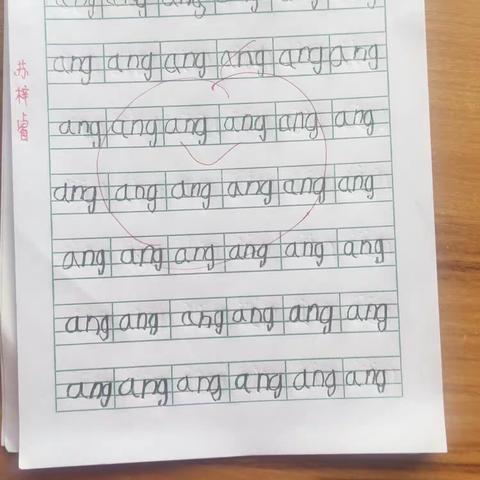 苏梓睿
ang ang ang ang ang ang
ang ang ang ang ang ang
ang ang ang ang ang ang
ang ang ang ang ang ang
ang ang ang ang ang ang
ang ang ang ang ang ang